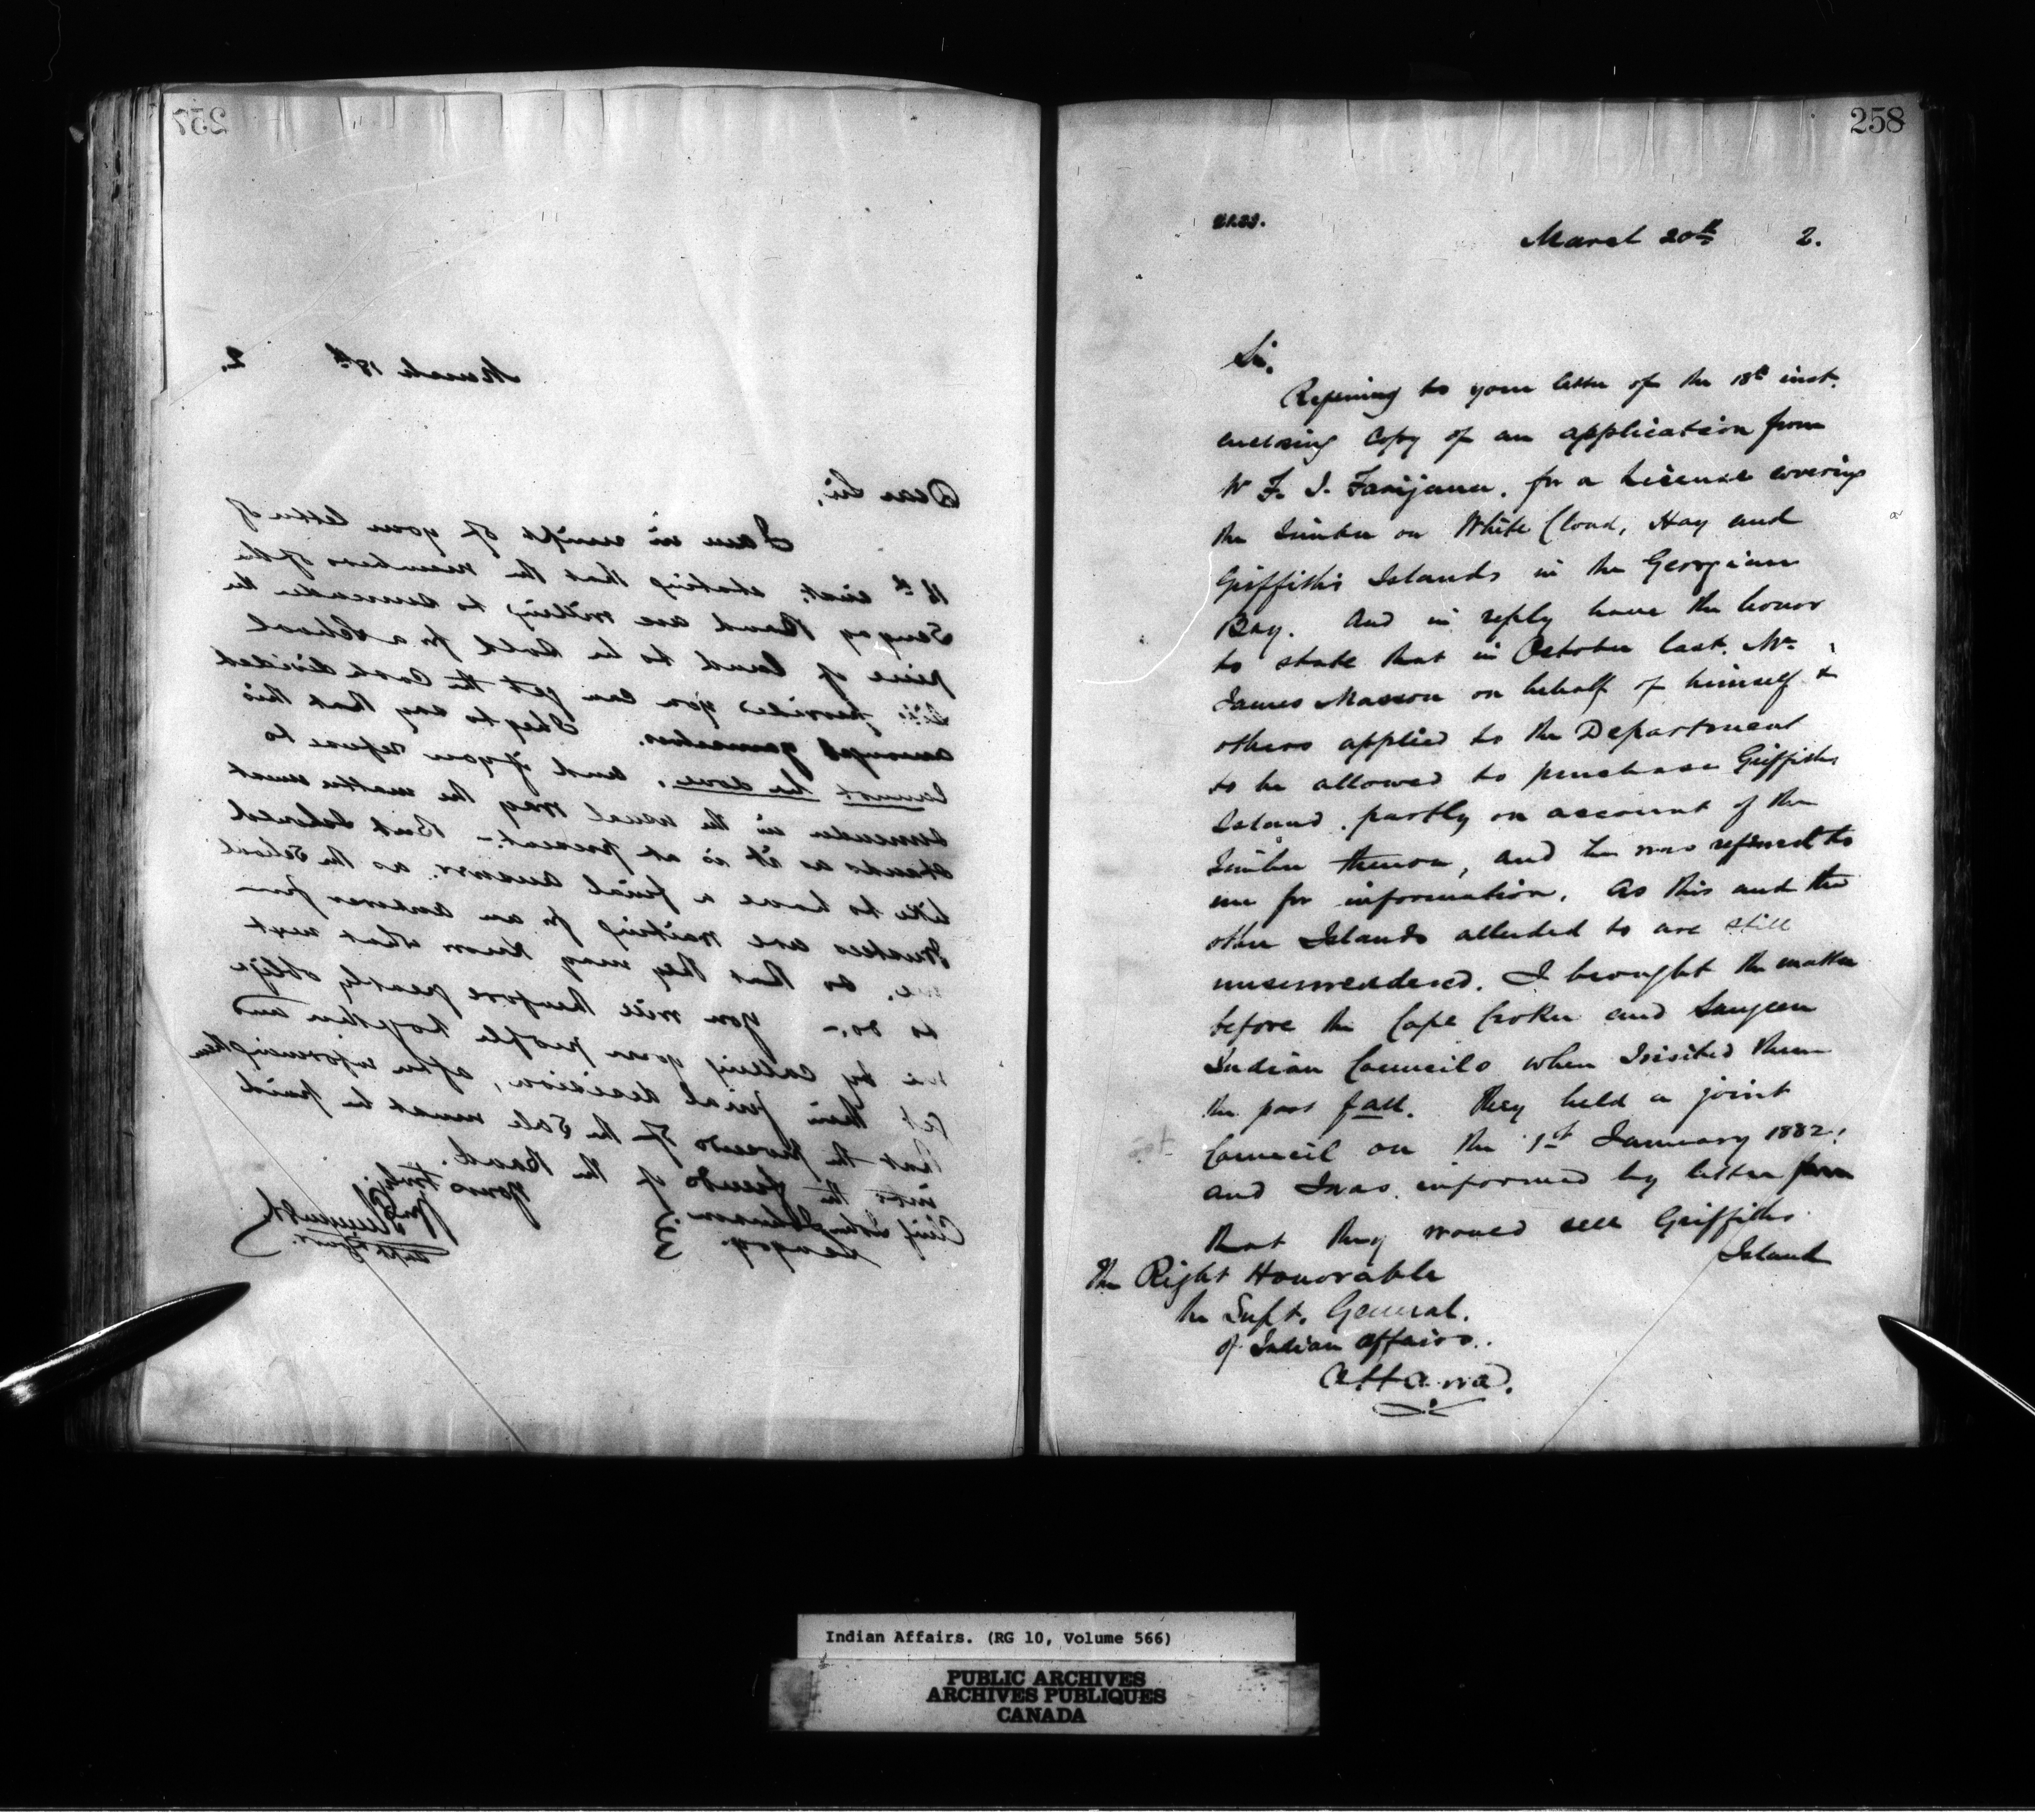 257
March 18th 2.
Dear Sir,
I am in receipt of your letter of
16th inst. stating that the members of the
Sengog Band are willing to surrender the
piece of land to be sold for a School
site provided you can get the Cash divided
amongst yourselves. I beg to say that this
cannot be done, and if you refuse to
surrender in the usual way the matter must
stand as it is at present.- But I should
like to have a final answer, as the School
Trustees are waiting for an answer from
me, so that they may know what next
to do.- You will therefore greatly oblige
me by calling your people together and
get their final decision, after informing them
that the proceeds of the Sale must be paid
into the funds of the Band.
Yours truly,
Chief John Johnson
Sengog.
258
March 20th 2.
Sir,
Refering to your letter of the 18th inst.
enclosing Copy of an application from
W F. J. for a License covering
the Timber on White Cloud, Hay and
Griffiths Islands in the Georgian
Bay. And in reply have the honor
to state that in October last. Mr
James Masson on behalf of himself &
others applied to the Department
to be allowed to purchase Griffiths
Island. partly on account of the
Timber thereon, and he was referred to
me for information. As this and the
other Islands alluded to are still
unsurrendered. I brought the matter
before the Cape Croker and Saugeen
Indian Councils when I visited them
the past fall. They held a joint
Council on the 1st January 1882.
and I was informed by letter from
that they would sell Griffiths
Island
The Right Honorable
the Supt. General.
of Indian Affairs.
Ottawa.
Indian Affairs. (RG 10, Volume 566)
PUBLIC ARCHIVES
ARCHIVES PUBLIQUES
CANADA